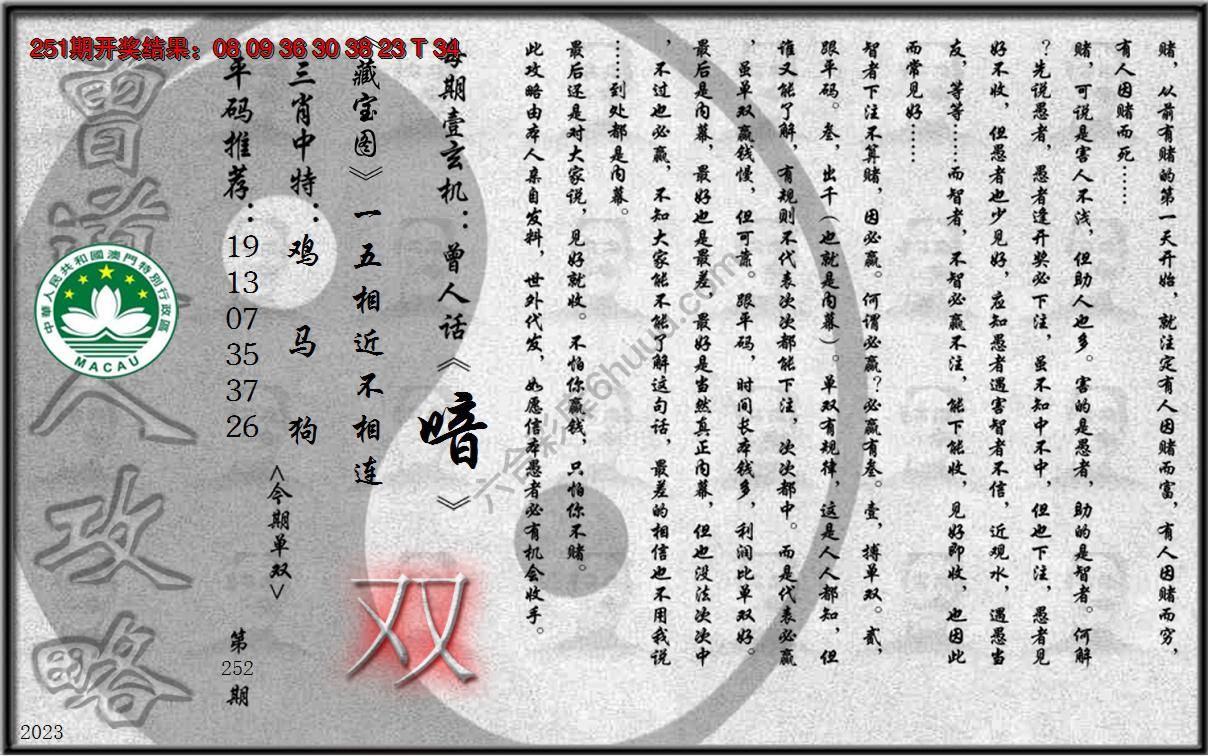 251期开奖结果：08 09 36 30 38 23 T 34
赌，从前有赌的第一天开始，就注定有人因赌而富，有人因赌而穷，
有人因赌而死……
赌，可说是害人不浅，但助人也多。害的是愚者，助的是智者。何解
？先说愚者，愚者逢开奖必下注，虽不知中不中，但也下注，愚者见
好不收，但愚者也少见好，应知愚者遇害智者不信，近观水，遇愚当
友，等等……而智者，不智必赢不注，能下能收，见好即收，也因此
而常见好……
智者下注不算赌，因必赢。何谓必赢？必赢有叁。壹，搏单双。贰，
跟平码。叁，出千（也就是内幕）。单双有规律，这是人人都知，但
谁又能了解，有规则不代表次次都能下注，次次都中。而是代表必赢
，虽单双赢钱慢，但可靠。跟平码，时间长本钱多，利润比单双好。
最后是内幕，最好也是最差，最好是当然真正内幕，但也没法次次中
，不过也必赢，不知大家能不能了解这句话，最差的相信也不用我说
……到处都是内幕。
最后还是对大家说，见好就收。不怕你赢钱，只怕你不赌。
此攻略由本人亲自发料，世外代发，如愿信本愚者必有机会收手。
每期壹玄机：曾人话《暗》
《藏宝图》一五相近不相连
双
三肖中特：鸡 马 狗
<今期单双>
平码推荐：19 13 07 35 37 26
第252期
曾道人攻略
中華人民共和國澳門特別行政區
MACAU
六合彩库6huuu.com
2023